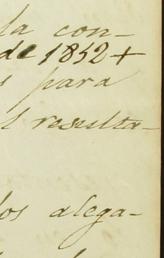 la con-
de 1852 +
s para
l resulta-
los alega-